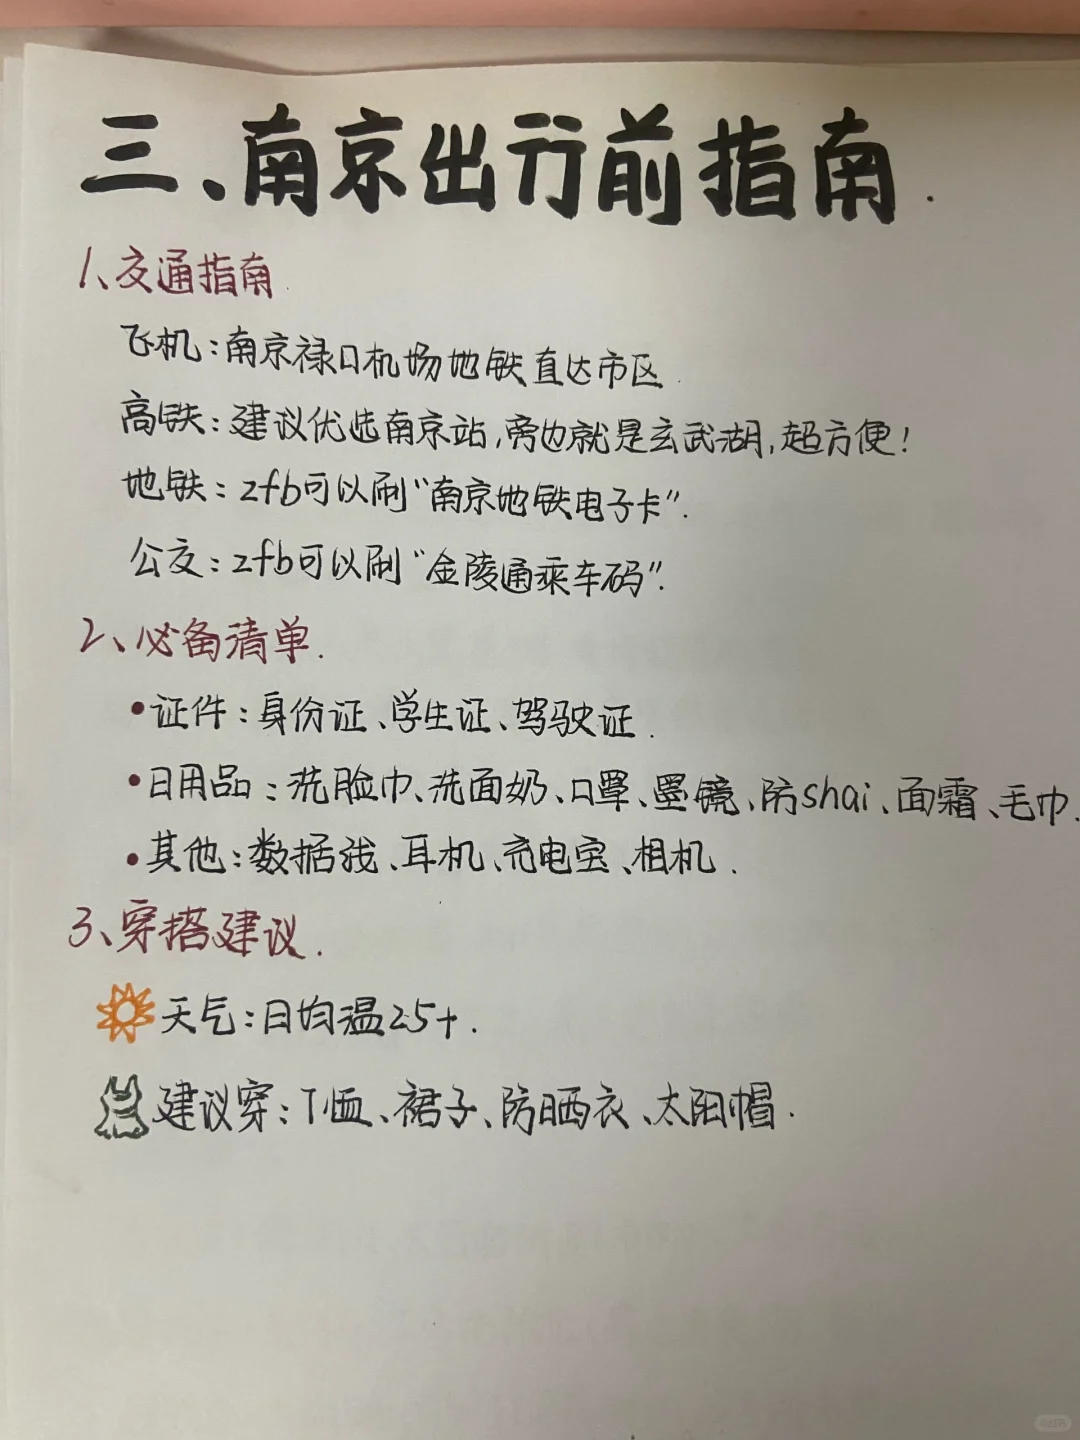 三、南京出行前指南.
1、交通指南.
飞机:南京禄口机场地铁直达市区.
高铁:建议优选南京站,旁边就是玄武湖,超方便!
地铁:zfb可以刷“南京地铁电子卡”.
公交:zfb可以刷“金陵通乘车码”.
2、必备清单.
•证件:身份证、学生证、驾驶证.
•日用品:洗脸巾、洗面奶、口罩、墨镜、防shai、面霜、毛巾.
•其他:数据线、耳机、充电宝、相机.
3、穿搭建议.
天气:日均温25+.
建议穿:T恤、裙子、防晒衣、太阳帽.